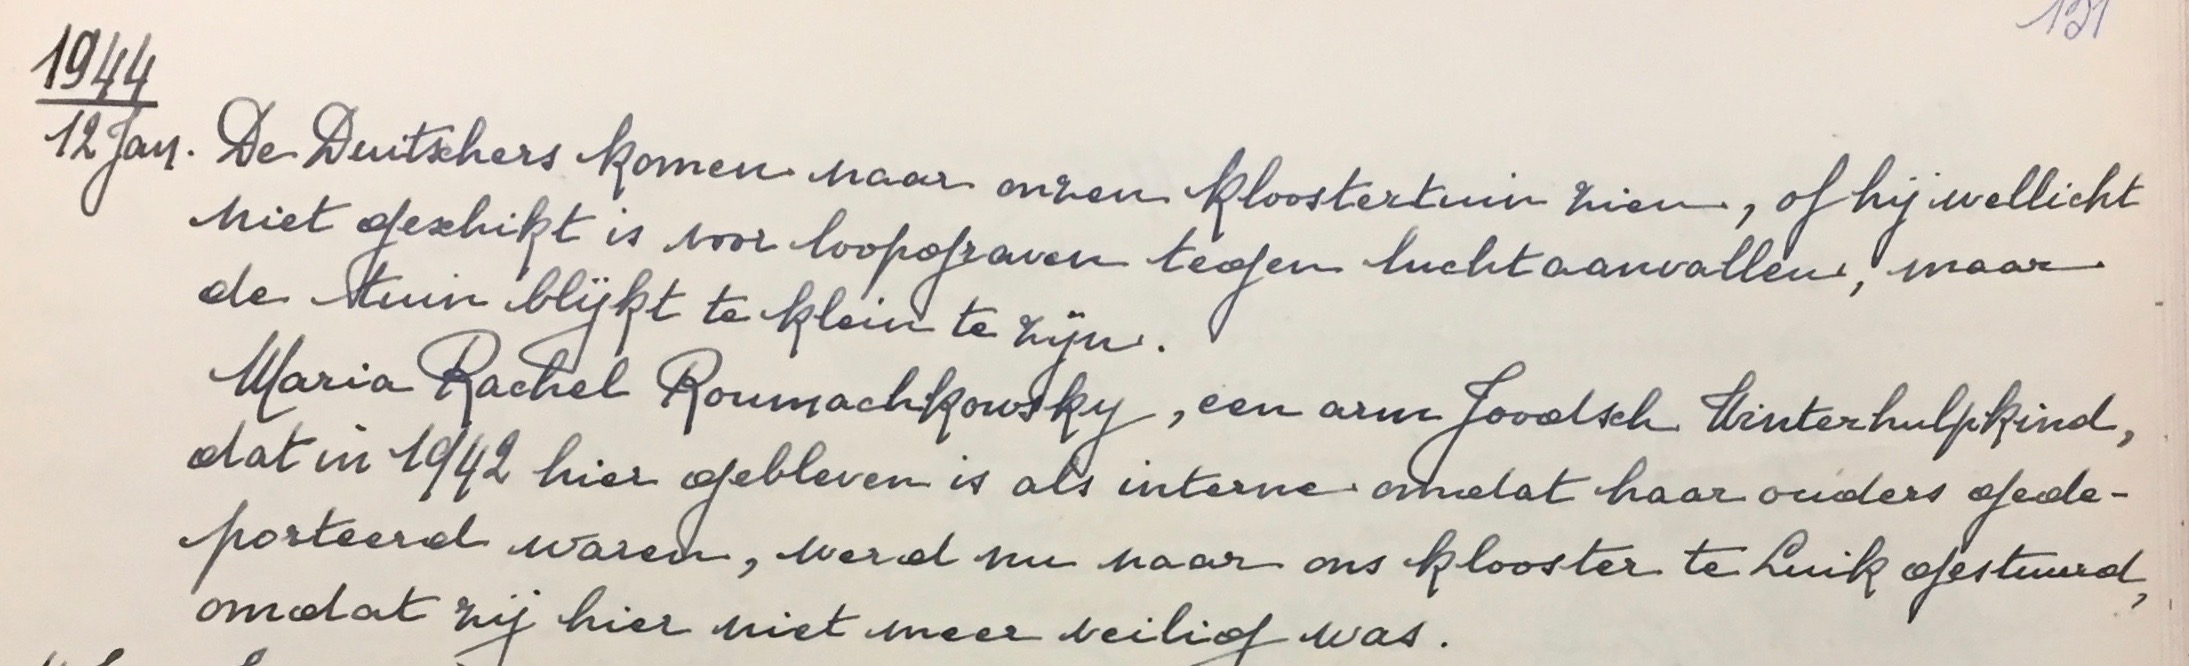 131
1944
12 Jan. De Duitschers komen naar onzen kloostertuin zien, of hij wellicht
niet geschikt is voor loopgraven tegen luchtaanvallen, maar
de tuin blijkt te klein te zijn.
Maria Rachel Roumachkowsky, een arm Joodsch Winterhulpkind,
dat in 1942 hier gebleven is als interne omdat haar ouders gede-
porteerd waren, werd nu naar ons klooster te Luik gestuurd,
omdat zij hier niet meer veilig was.